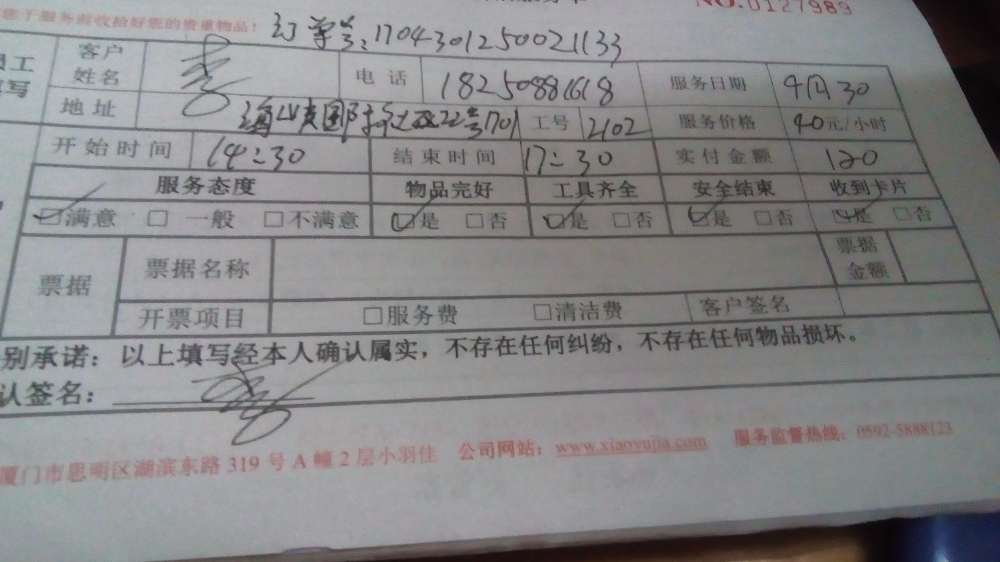 您于服务前收拾好您的贵重物品！ NO.0127989
订单号：17043012500021133
客户姓名 电话 18250881618 服务日期 4月30
地址 22号1701 工号 2102 服务价格 40元/小时
开始时间 14:30 结束时间 17:30 实付金额 120
服务态度 物品完好 工具齐全 安全结束 收到卡片
☑满意 □一般 □不满意 ☑是 □否 ☑是 □否 ☑是 □否 ☑是 □否
票据 票据名称 票据金额
开票项目 □服务费 □清洁费 客户签名
别承诺：以上填写经本人确认属实，不存在任何纠纷，不存在任何物品损坏。
认签名：
厦门市思明区湖滨东路 319 号 A 幢 2 层小羽佳 公司网站：www.xiaoyujia.com 服务监督热线：0592-5888123